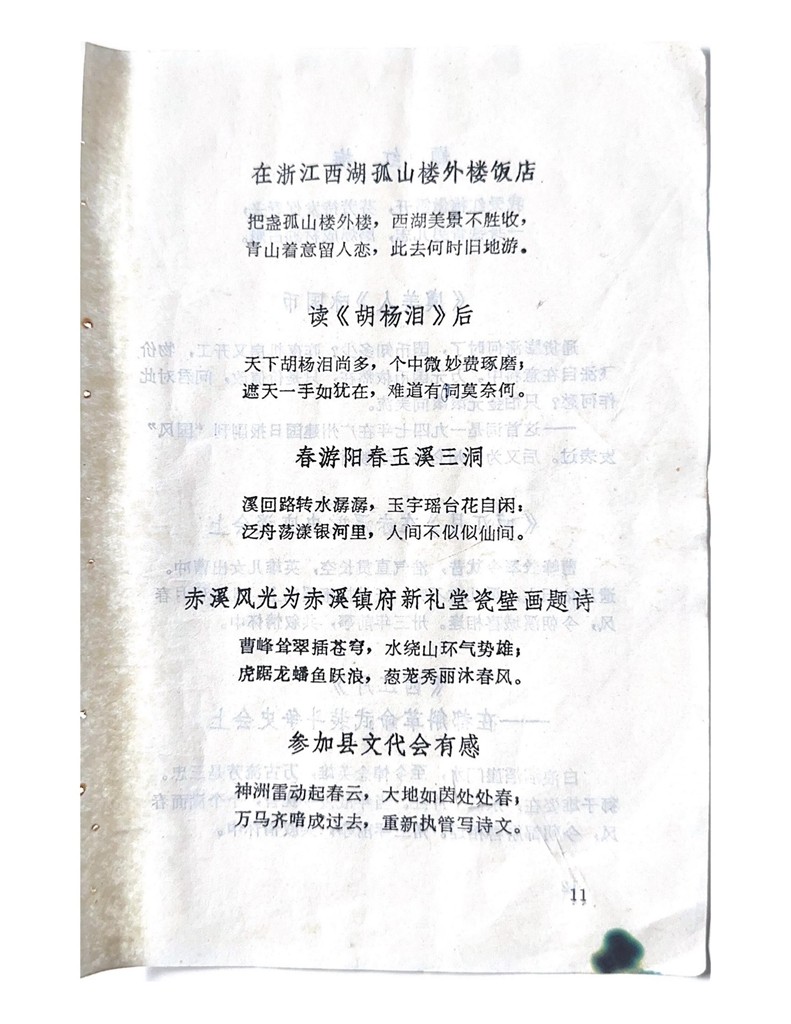 在浙江西湖孤山楼外楼饭店
把盏孤山楼外楼，西湖美景不胜收，
青山着意留人恋，此去何时旧地游。
读《胡杨泪》后
天下胡杨泪尚多，个中微妙费琢磨；
遮天一手如犹在，难道有词莫奈何。
春游阳春玉溪三洞
溪回路转水潺潺，玉宇瑶台花自闲；
泛舟荡漾银河里，人间不似似仙间。
赤溪风光为赤溪镇府新礼堂瓷壁画题诗
曹峰耸翠插苍穹，水绕山环气势雄；
虎踞龙蟠鱼跃浪，葱茏秀丽沐春风。
参加县文代会有感
神洲雷动起春云，大地如茵处处春；
万马齐喑成过去，重新执管写诗文。
11